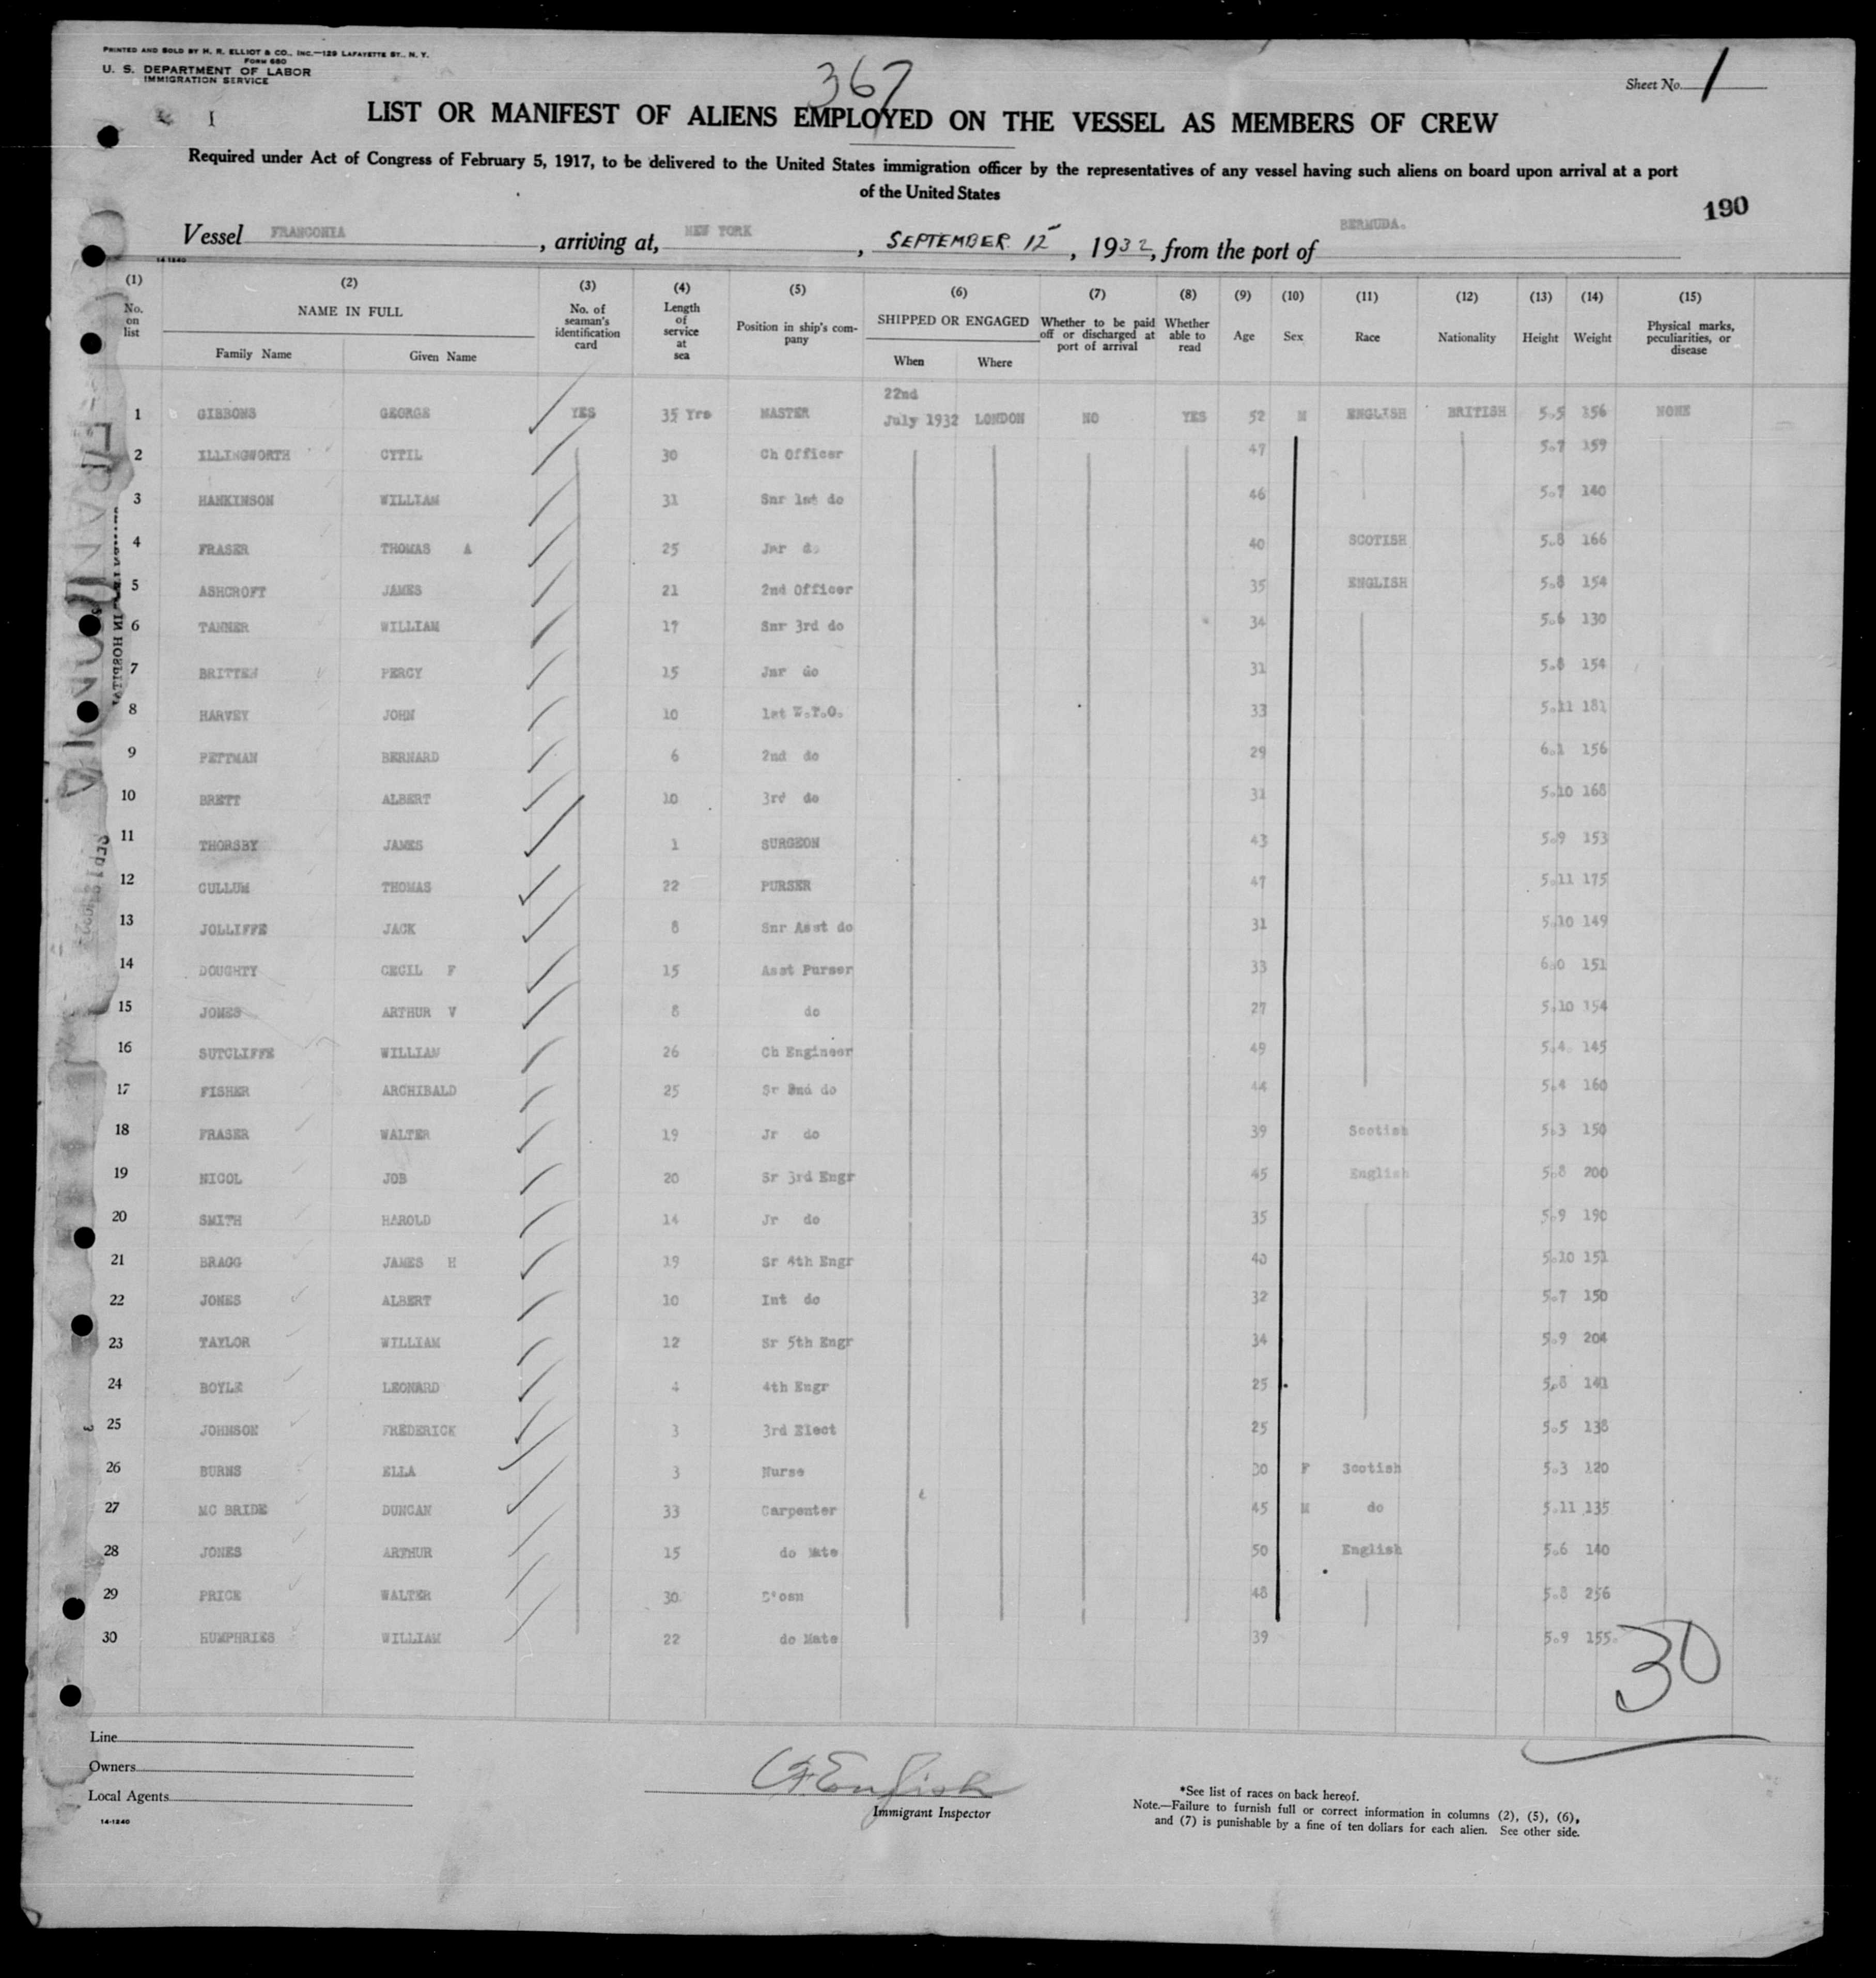 PRINTED AND SOLD BY H. R. ELLIOT & CO., INC.—129 LAFAYETTE ST., N. Y.
FORM 680
U. S. DEPARTMENT OF LABOR
IMMIGRATION SERVICE
367
Sheet No. 1
I
LIST OR MANIFEST OF ALIENS EMPLOYED ON THE VESSEL AS MEMBERS OF CREW
Required under Act of Congress of February 5, 1917, to be delivered to the United States immigration officer by the representatives of any vessel having such aliens on board upon arrival at a port
of the United States
190
Vessel FRANCONIA, arriving at, NEW YORK, SEPTEMBER 12, 1932, from the port of BERMUDA.
14-1240
(1) (2) (3) (4) (5) (6) (7) (8) (9) (10) (11) (12) (13) (14) (15)
No. on list NAME IN FULL Family Name Given Name No. of seaman's identification card Length of service at sea Position in ship's company SHIPPED OR ENGAGED When Where Whether to be paid off or discharged at port of arrival Whether able to read Age Sex Race Nationality Height Weight Physical marks, peculiarities, or disease
22nd
1 GIBBONS GEORGE YES 35 Yrs MASTER July 1932 LONDON NO YES 52 M ENGLISH BRITISH 5.5 156 NONE
2 ILLINGWORTH CYTIL 30 Ch Officer 47 5.7 159
3 HANKINSON WILLIAM 31 Snr 1st do 46 5.7 140
4 FRASER THOMAS A 25 Jnr do 40 SCOTISH 5.8 166
5 ASHCROFT JAMES 21 2nd Officer 35 ENGLISH 5.8 154
6 TANNER WILLIAM 17 Snr 3rd do 34 5.6 130
7 BRITTEN PERCY 15 Jnr do 31 5.8 154
8 HARVEY JOHN 10 1st W.T.O. 33 5.11 181
9 PETTMAN BERNARD 6 2nd do 29 6.1 156
10 BRETT ALBERT 10 3rd do 31 5.10 168
11 THORSBY JAMES 1 SURGEON 43 5.9 153
12 CULLUM THOMAS 22 PURSER 47 5.11 175
13 JOLLIFFE JACK 8 Snr Asst do 31 5.10 149
14 DOUGHTY CECIL F 15 Asst Purser 33 6.0 151
15 JONES ARTHUR V 8 do 27 5.10 154
16 SUTCLIFFE WILLIAM 26 Ch Engineer 49 5.4 145
17 FISHER ARCHIBALD 25 Sr 2nd do 44 5.4 160
18 FRASER WALTER 19 Jr do 39 Scotish 5.3 150
19 NICOL JOB 20 Sr 3rd Engr 45 English 5.8 200
20 SMITH HAROLD 14 Jr do 35 5.9 190
21 BRAGG JAMES H 19 Sr 4th Engr 40 5.10 151
22 JONES ALBERT 10 Int do 32 5.7 150
23 TAYLOR WILLIAM 12 Sr 5th Engr 34 5.9 204
24 BOYLE LEONARD 4 4th Engr 25 5.8 141
25 JOHNSON FREDERICK 3 3rd Elect 25 5.5 138
26 BURNS ELLA 3 Nurse 30 F Scotish 5.3 120
27 MC BRIDE DUNCAN 33 Carpenter 45 M do 5.11 135
28 JONES ARTHUR 15 do Mate 50 English 5.6 140
29 PRICE WALTER 30 B'osn 48 5.8 256
30 HUMPHRIES WILLIAM 22 do Mate 39 5.9 155
30
Line
Owners
Local Agents
14-1240
English
Immigrant Inspector
*See list of races on back hereof.
Note.—Failure to furnish full or correct information in columns (2), (5), (6),
and (7) is punishable by a fine of ten dollars for each alien. See other side.